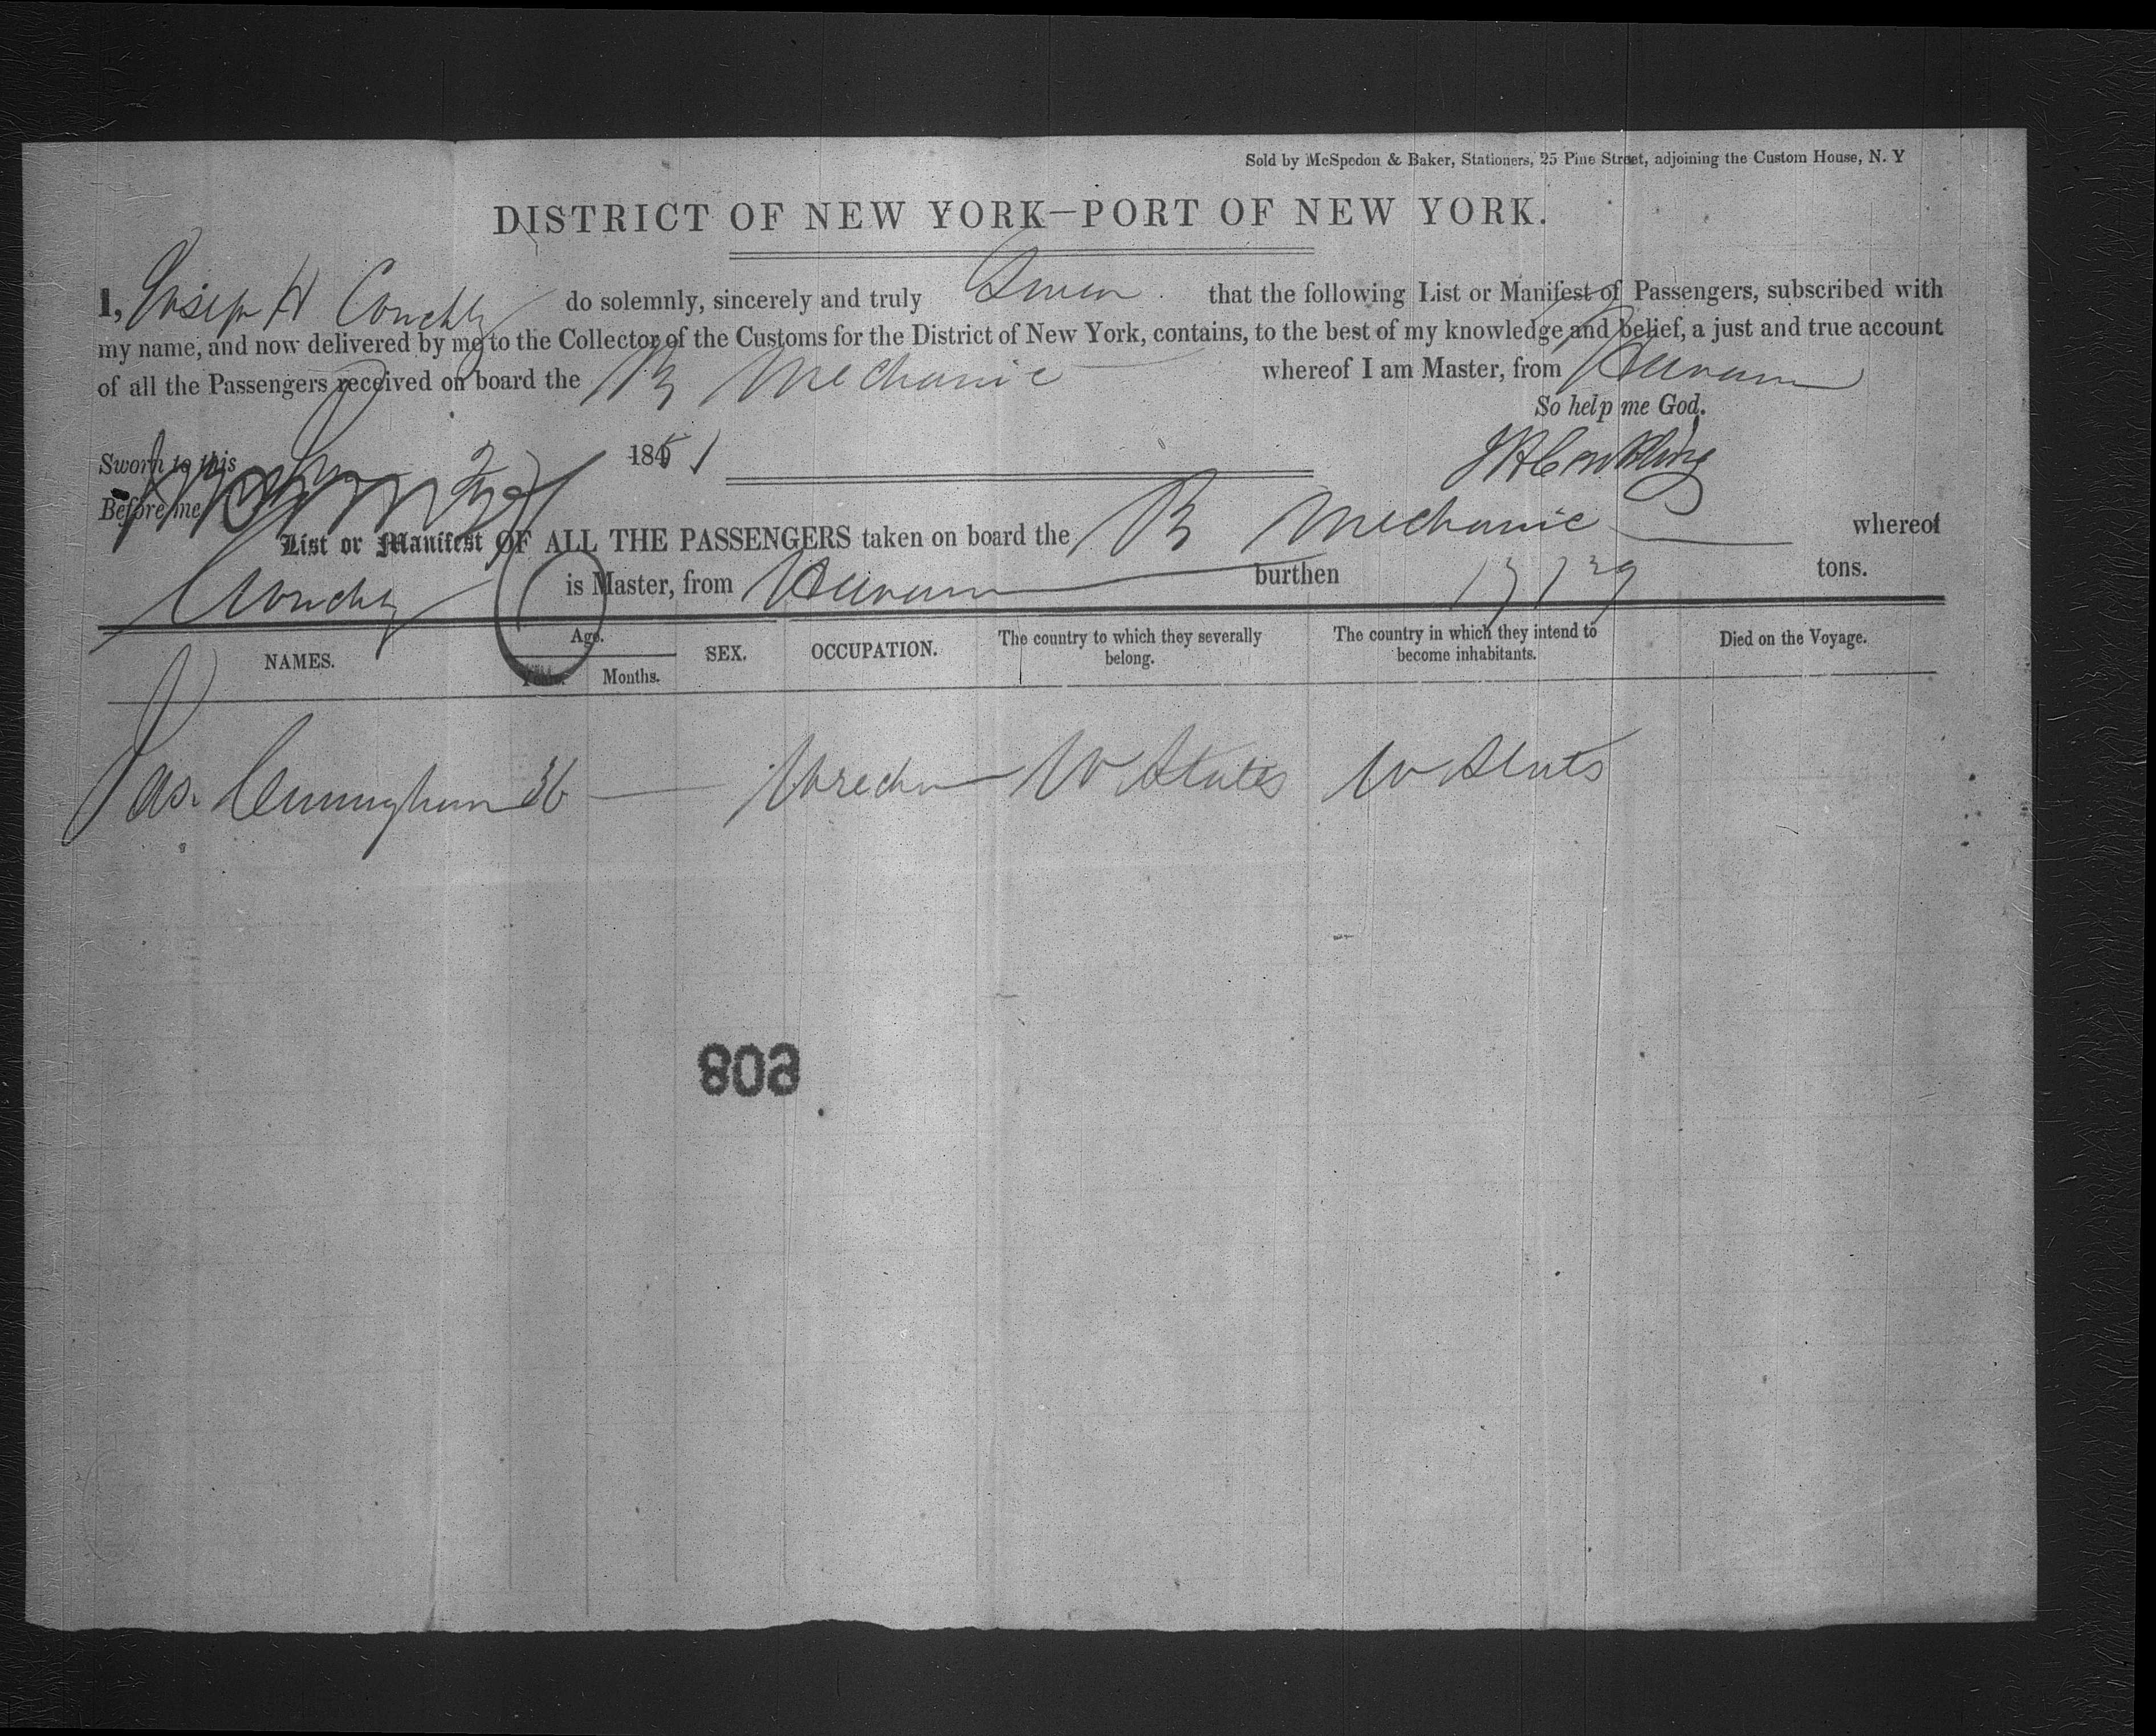 Sold by McSpedon & Baker, Stationers, 25 Pine Street, adjoining the Custom House, N. Y
DISTRICT OF NEW YORK—PORT OF NEW YORK.
I, Joseph H do solemnly, sincerely and truly Swear that the following List or Manifest of Passengers, subscribed with
my name, and now delivered by me to the Collector of the Customs for the District of New York, contains, to the best of my knowledge and belief, a just and true account
of all the Passengers received on board the B Mechanic whereof I am Master, from Havana
So help me God.
Sworn to this 1851
J H Conkling
Before me
List or Manifest OF ALL THE PASSENGERS taken on board the B Mechanic whereof
is Master, from Havana burthen tons.
NAMES. Age. Years. Months. SEX. OCCUPATION. The country to which they severally belong. The country in which they intend to become inhabitants. Died on the Voyage.
Jas. Cunningham 36 U States U States
809